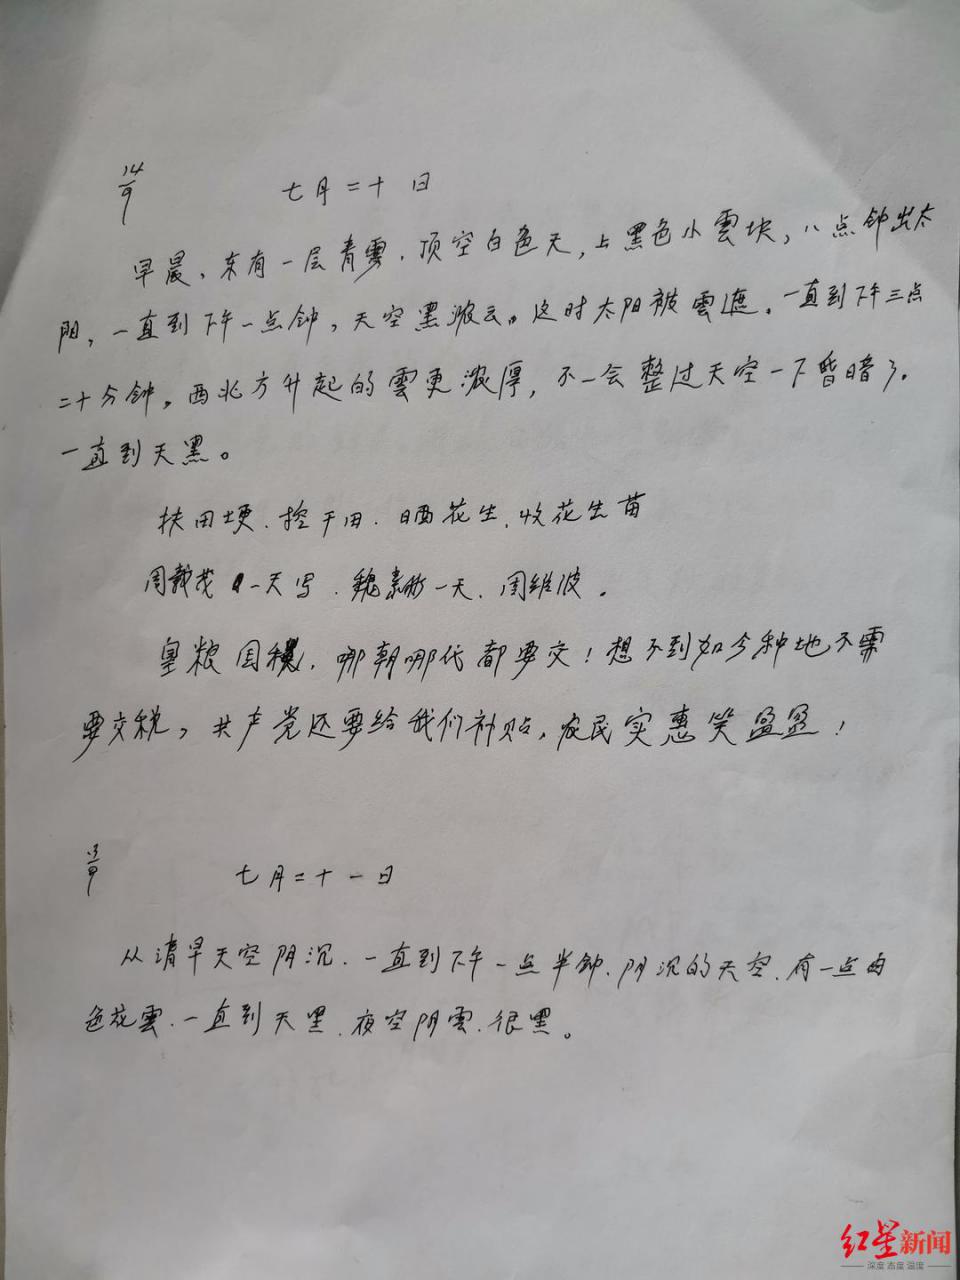 14/9 七月二十日
早晨、东有一层青雲、顶空白色天，上黑色小雲块，八点钟出太
阳，一直到下午一点钟，天空黑浓云。这时太阳被雲遮。一直到下午三点
二十分钟。西北方升起的雲更浓厚，不一会整过天空一下昏暗了。
一直到天黑。
扶田埂、挖干田、晒花生、收花生苗
周载茂 一天写、魏素彬一天、周维波。
皇粮国税，哪朝哪代都要交！想不到如今种地不需
要交税，共产党还要给我们补贴，农民实惠笑盈盈！
七月二十一日
从清早天空阴沉、一直到下午一点半钟、阴沉的天空、有一点白
色花雲、一直到天黑、夜空阴雲、很黑。
红星新闻
深度 态度 温度